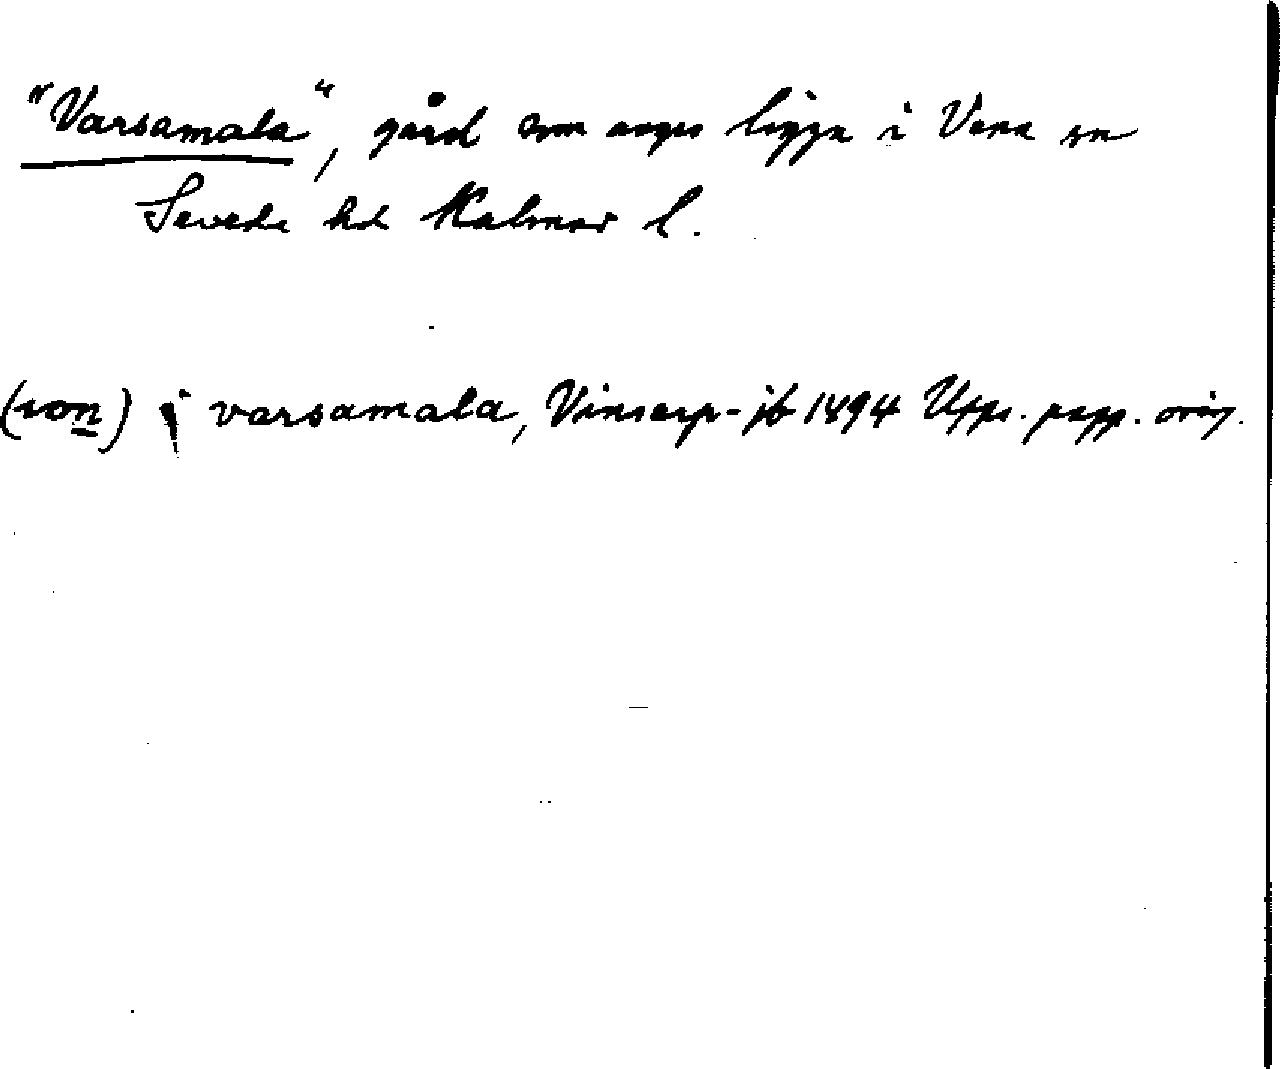 "Varsamåla", gård som anges ligga i Vena sn
Sevede hd Kalmar l.
(son) j varsamala, Vinsarp-jb 1494 Upps. papp. orig.